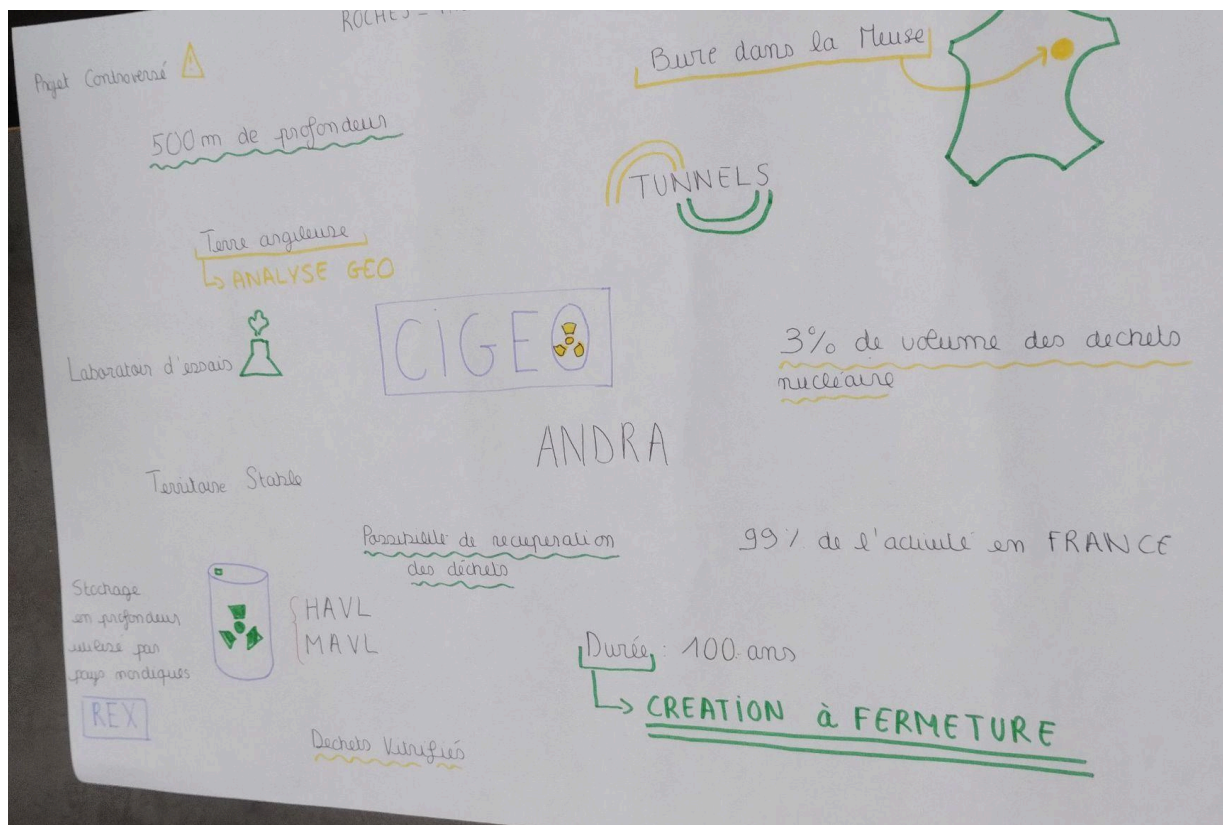 ROCHES -
Projet Controversé
Bure dans la Meuse
500 m de profondeur
TUNNELS
Terre argileuse
ANALYSE GEO
CIGEO
Laboratoir d'essais
3% de volume des dechets
nucléaire
ANDRA
Territoire Stable
Possibilité de recuperation
des déchets
99% de l'activité en FRANCE
Stockage
en profondeur
utilisé par
pays nordiques
HAVL
MAVL
REX
Durée : 100 ans
CREATION à FERMETURE
Dechets Vitrifiés